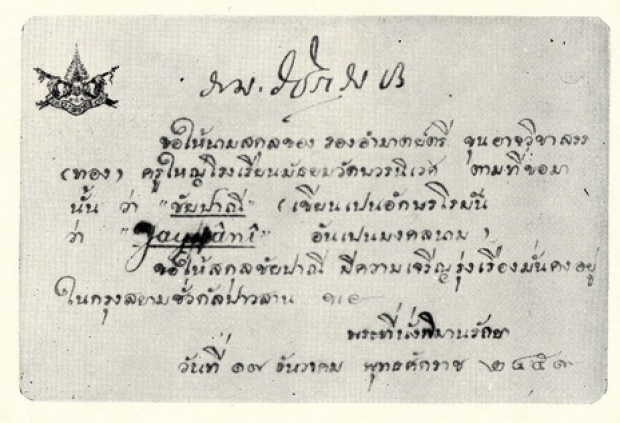 ขอให้นามสกุลของ รองอำมาตย์ตรี ขุนอาจวิชาสรร
(ทอง) ครูใหญ่โรงเรียนมัธยมวัดบวรนิเวศ ตามที่ขอมา
นั้น ว่า "ชัยปาณี" (เขียนเปนอักษรโรมัน
ว่า "Jayapânî" อันเปนมงคลนาม)
ขอให้สกุลชัยปาณี มีความเจริญรุ่งเรืองมั่นคงอยู่
ในกรุงสยามชั่วกัลปาวสาน เทอญ
พระที่นั่งพิมานรัถยา
วันที่ ๑๗ ธันวาคม พุทธศักราช ๒๔๕๙